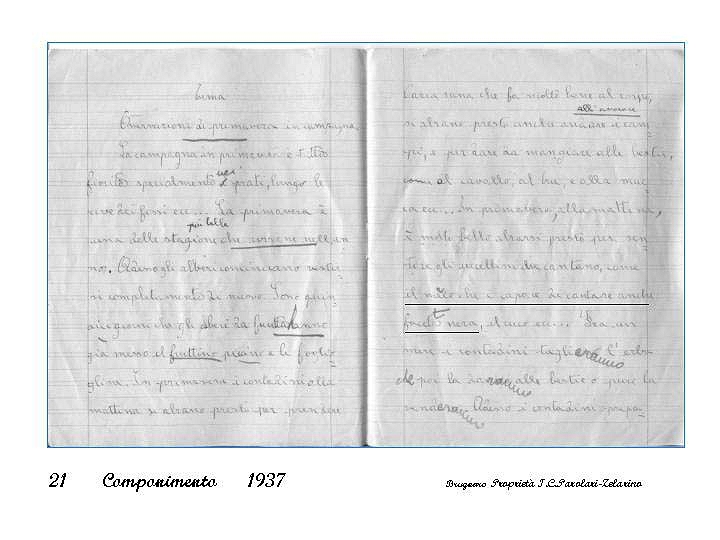 Tema
Osservazione di primavera in campagna.
La campagna in primavera è tutta
fiorita specialmente nei prati, lungo le
rive dei fossi ecc... La primavera è
più belle
una delle stagione che avviene nell'an
no. Adesso gli alberi cominciano vestir
si completamente di nuovo. Sono quin
dici giorni che gli alberi da frutta hanno
già messo il fruttino piccino e le foglio
gline. In primavera i contadini alla
mattina si alzano presto per prendere
l'aria sana che fa molto bene al corpo,
all'amore
si alzano presto anche andare i cam
pi, e per dare da mangiare alle bestie,
come al cavallo, al bue, e alla muc
ca ecc... In primavera, alla mattina,
è molto bello alzarsi presto per sen
tire gli uccellini che cantano, come
il merlo che è capace di cantare anche
nera, il cuco ecc... Fra un
mese i contadini taglieranno l'erba
che poi la daranno alle bestie o pure la
venderanno. Adesso i contadini prepa
21 Componimento 1937
Brugesso Proprietà I.C.Parolari-Zelarino